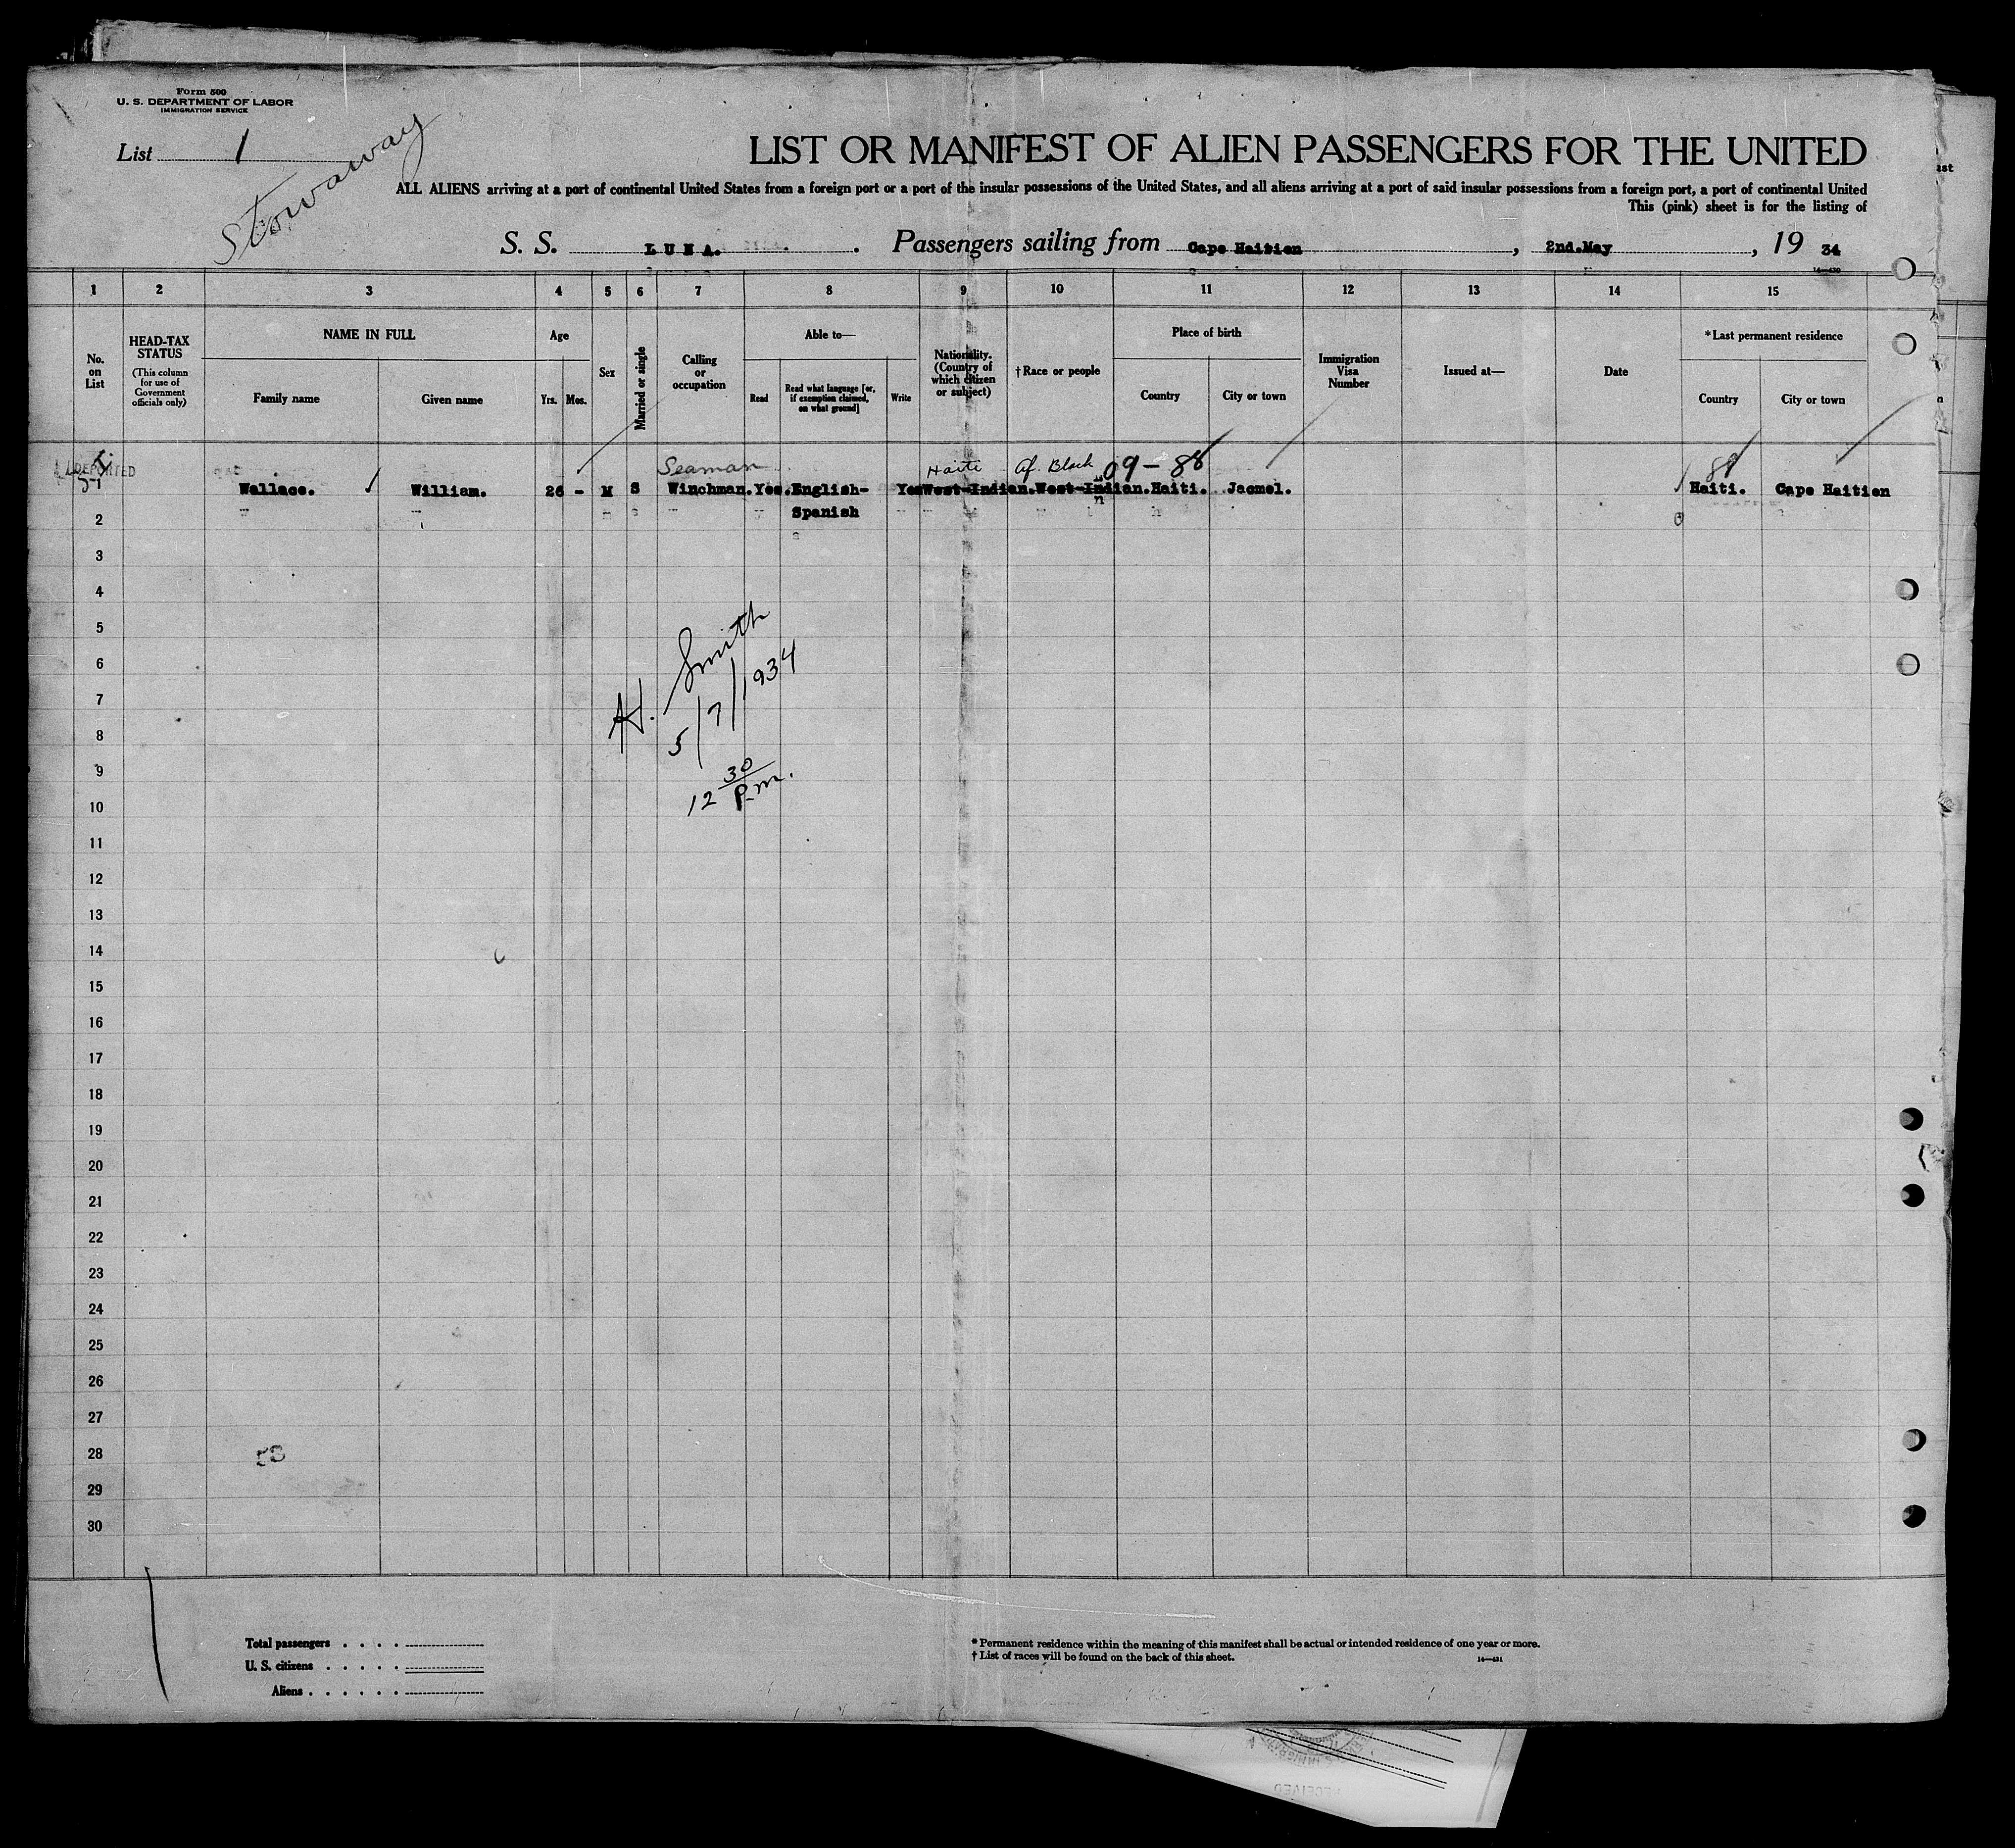 Form 500
U. S. DEPARTMENT OF LABOR
IMMIGRATION SERVICE
List 1
Stowaway
LIST OR MANIFEST OF ALIEN PASSENGERS FOR THE UNITED
ALL ALIENS arriving at a port of continental United States from a foreign port or a port of the insular possessions of the United States, and all aliens arriving at a port of said insular possessions from a foreign port, a port of continental United
This (pink) sheet is for the listing of
S. S. LUNA. Passengers sailing from Cape Haitien, 2nd.May, 19 34
14—430
1 2 3 4 5 6 7 8 9 10 11 12 13 14 15
No. on List
HEAD-TAX STATUS
(This column for use of Government officials only)
NAME IN FULL
Family name Given name
Age
Yrs. Mos.
Sex
Married or single
Calling or occupation
Able to—
Read
Read what language [or, if exemption claimed, on what ground]
Write
Nationality. (Country of which citizen or subject)
†Race or people
Place of birth
Country City or town
Immigration Visa Number
Issued at—
Date
*Last permanent residence
Country City or town
DEPORTED Seaman Haiti Af. Black 09-88 88
1 Wallace. William. 26 - M S Winchman. Yes. English- Yes West-Indian. West-Indian. Haiti. Jacmel. Haiti. Cape Haitien
2 Spanish
3
4
5
6
7
8
9
10
11
12
13
14
15
16
17
18
19
20
21
22
23
24
25
26
27
28
29
30
H. Smith
5/7/1934
12 30 P.m.
53
Total passengers . . . .
U. S. citizens . . . . .
Aliens . . . . . .
* Permanent residence within the meaning of this manifest shall be actual or intended residence of one year or more.
† List of races will be found on the back of this sheet.
14—431
RECEIVED